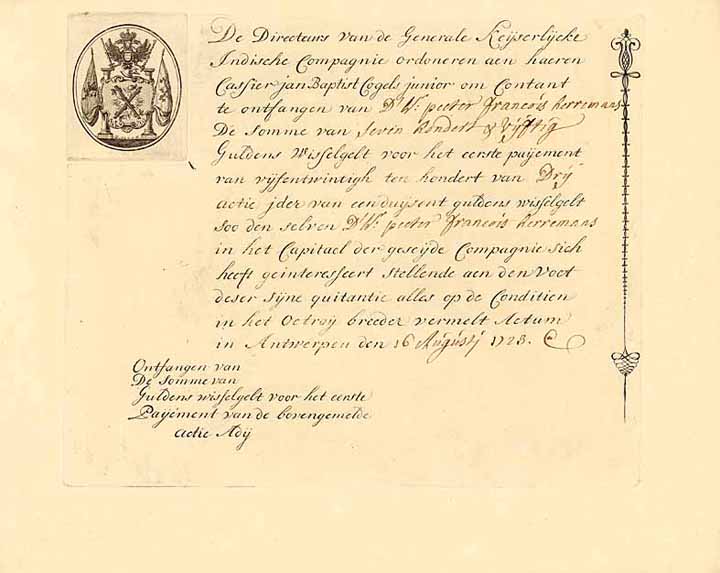 De Directeurs van de Generale Keijserlijcke
Indische Compagnie ordoneren aen haeren
Cassier jan Baptist Cogels junior om Contant
te ontfangen van Dr. Wr. peeter francois herremans
De somme van sevin hondert & vijftig
Guldens Wisselgelt voor het eerste paijement
van vijfentwintigh ten hondert van Drij
actie jder van een duijsent guldens wisselgelt
soo den selven Dr. Wr. peeter francois herremans
in het Capitael der geseijde Compagnie sich
heeft geinteresseert stellende aen den Voet
deser sijne quitantie alles op de Conditien
in het Octroij breeder vermelt Actum
in Antwerpen den 16 Augustj 1723.
Ontfangen van
De somme van
Guldens wisselgelt voor het eerste
Paijement van de bovengemelde
actie Adij